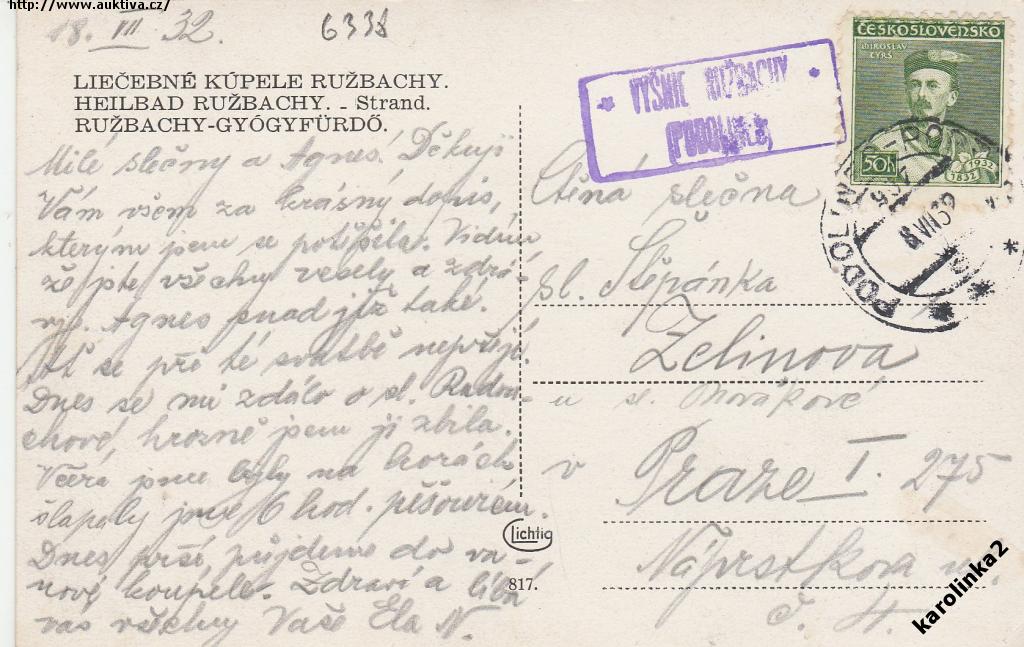 http://www.auktiva.cz/
18. III 32.
6338
LIEČEBNÉ KÚPELE RUŽBACHY.
HEILBAD RUŽBACHY. - Strand.
RUŽBACHY-GYÓGYFÜRDŐ.
Milé slečny a Agnes! Děkuji
Vám všem za krásný dopis,
kterým jsem se potěšila. Vidím
že jste všechny vesely a zdrá-
vy. Agnes snad již také.
Ať se pře té svatbě nepřejí.
Dnes se mi zdálo o sl. Radou-
chové, hrozně jsem ji zbila.
Včera jsme byly na horách
šlapaly jsme 6 hod. pěšourem.
Dnes prší, půjdeme do va-
nové koupele. Zdraví a líbá
vás všechny Vaše Ela N.
VYŠNIE RUŽBACHY
(PODOLINEC)
ČESKOSLOVENSKO
MIROSLAV
TYRŠ
50h
1832
1932
PODOLÍNEC
Ctěná slečna
sl. Štěpánka
Zelinova
u sl. Novákové
v Praze I. 275
Náprstkova ul.
č. 4.
Lichtig
817.
karolinka2